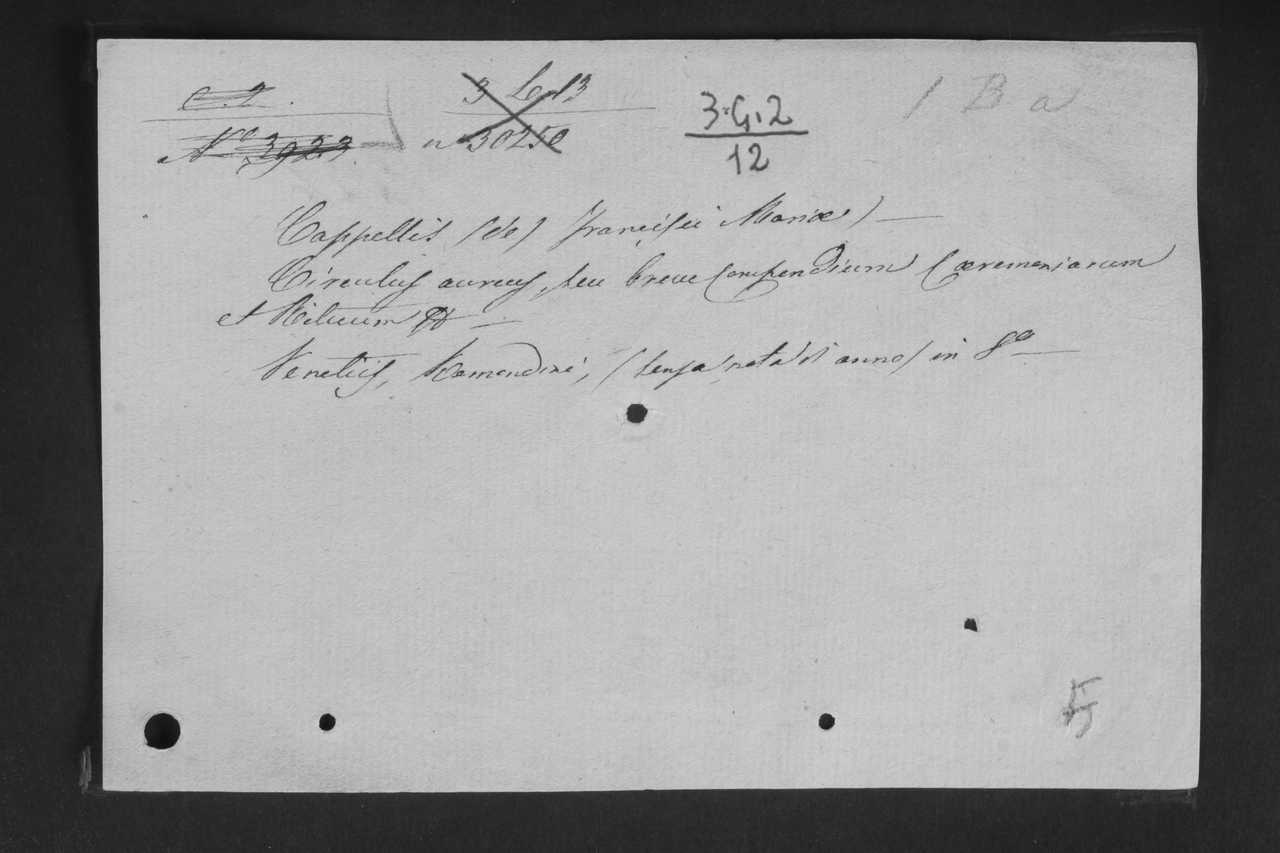 C. 2.
3 L. 13
3. G. 2
1 B a
Nº 3923.
nº 30250
12
Cappellis (de) Francisci Mariæ)
Circulus aureus, seu breve Compendium Cæremoniarum
et Rituum &
Venetiis, Remondini, (senza nota d'anno) in 8º